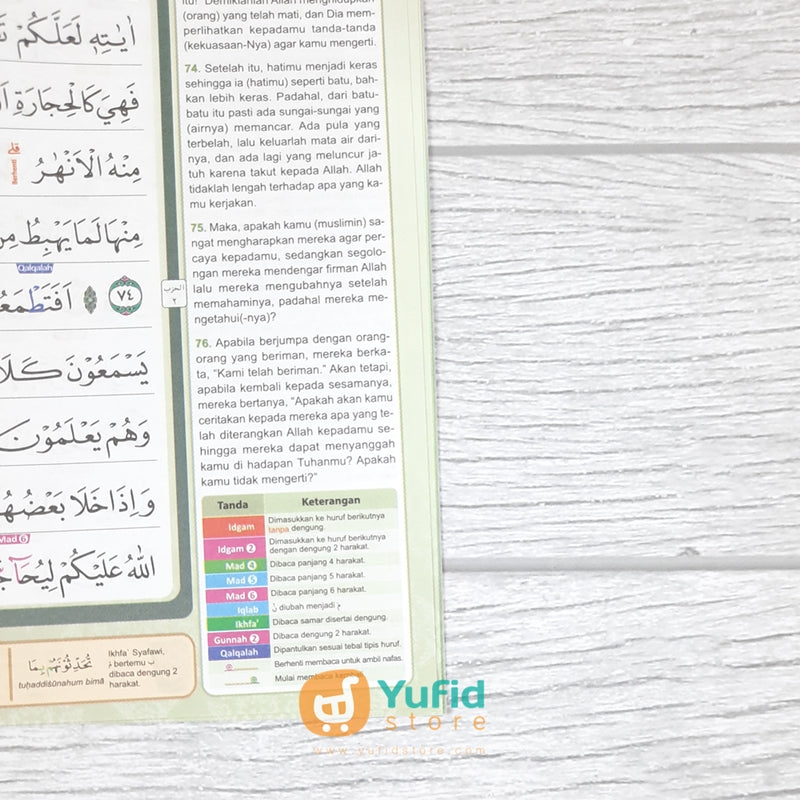 itu!" Demikianlah Allah menghidupkan
(orang) yang telah mati, dan Dia mem-
perlihatkan kepadamu tanda-tanda
(kekuasaan-Nya) agar kamu mengerti.
74. Setelah itu, hatimu menjadi keras
sehingga ia (hatimu) seperti batu, bah-
kan lebih keras. Padahal, dari batu-
batu itu pasti ada sungai-sungai yang
(airnya) memancar. Ada pula yang
terbelah, lalu keluarlah mata air dari-
nya, dan ada lagi yang meluncur ja-
tuh karena takut kepada Allah. Allah
tidaklah lengah terhadap apa yang ka-
mu kerjakan.
75. Maka, apakah kamu (muslimin) sa-
ngat mengharapkan mereka agar per-
caya kepadamu, sedangkan segolo-
ngan mereka mendengar firman Allah
lalu mereka mengubahnya setelah
memahaminya, padahal mereka me-
ngetahui(-nya)?
76. Apabila berjumpa dengan orang-
orang yang beriman, mereka berka-
ta, "Kami telah beriman." Akan tetapi,
apabila kembali kepada sesamanya,
mereka bertanya, "Apakah akan kamu
ceritakan kepada mereka apa yang te-
lah diterangkan Allah kepadamu se-
hingga mereka dapat menyanggah
kamu di hadapan Tuhanmu? Apakah
kamu tidak mengerti?"
اٰيٰتِهٖ لَعَلَّكُمْ
فَهِيَ كَالْحِجَارَةِ
Berhenti
قلى
مِنْهُ الْاَنْهٰرُ
مِنْهَا لَمَا يَهْبِطُ
Qalqalah
٧٤ اَفَتَطْمَعُ
الحزب
٢
يَسْمَعُوْنَ
وَهُمْ يَعْلَمُوْنَ
وَاِذَا خَلَا بَعْضُهُ
Mad 6
اللّٰهُ عَلَيْكُمْ
Tanda Keterangan
Idgam Dimasukkan ke huruf berikutnya
tanpa dengung.
Idgam 2 Dimasukkan ke huruf berikutnya
dengan dengung 2 harakat.
Mad 4 Dibaca panjang 4 harakat.
Mad 5 Dibaca panjang 5 harakat.
Mad 6 Dibaca panjang 6 harakat.
Iqlab ن diubah menjadi م
Ikhfa' Dibaca samar disertai dengung.
Gunnah 2 Dibaca dengung 2 harakat.
Qalqalah Dipantulkan sesuai tebal tipis huruf.
Berhenti membaca untuk ambil nafas.
Mulai membaca kembali.
تُحَدِّثُوْنَهُمْ بِمَا
tuḥaddiṡūnahum bimā
Ikhfa' Syafawi,
مْ bertemu ب
dibaca dengung 2
harakat.
Yufid
store
www.yufidstore.com